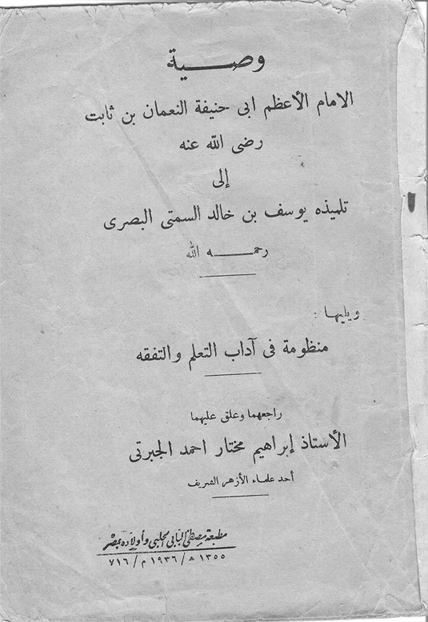 وصية
الامام الأعظم ابى حنيفة النعمان بن ثابت
رضى الله عنه
إلى
تلميذه يوسف بن خالد السمتى البصرى
رحمه الله
ويليها :
منظومة فى آداب التعلم والتفقه
راجعهما وعلق عليهما
الأستاذ إبراهيم مختار احمد الجبرتى
أحد علماء الأزهر الشريف
مطبعة مصطفى البابى الحلبى وأولاده بمصر
١٣٥٥ ھ / ١٩٣٦ م / ٧١٦